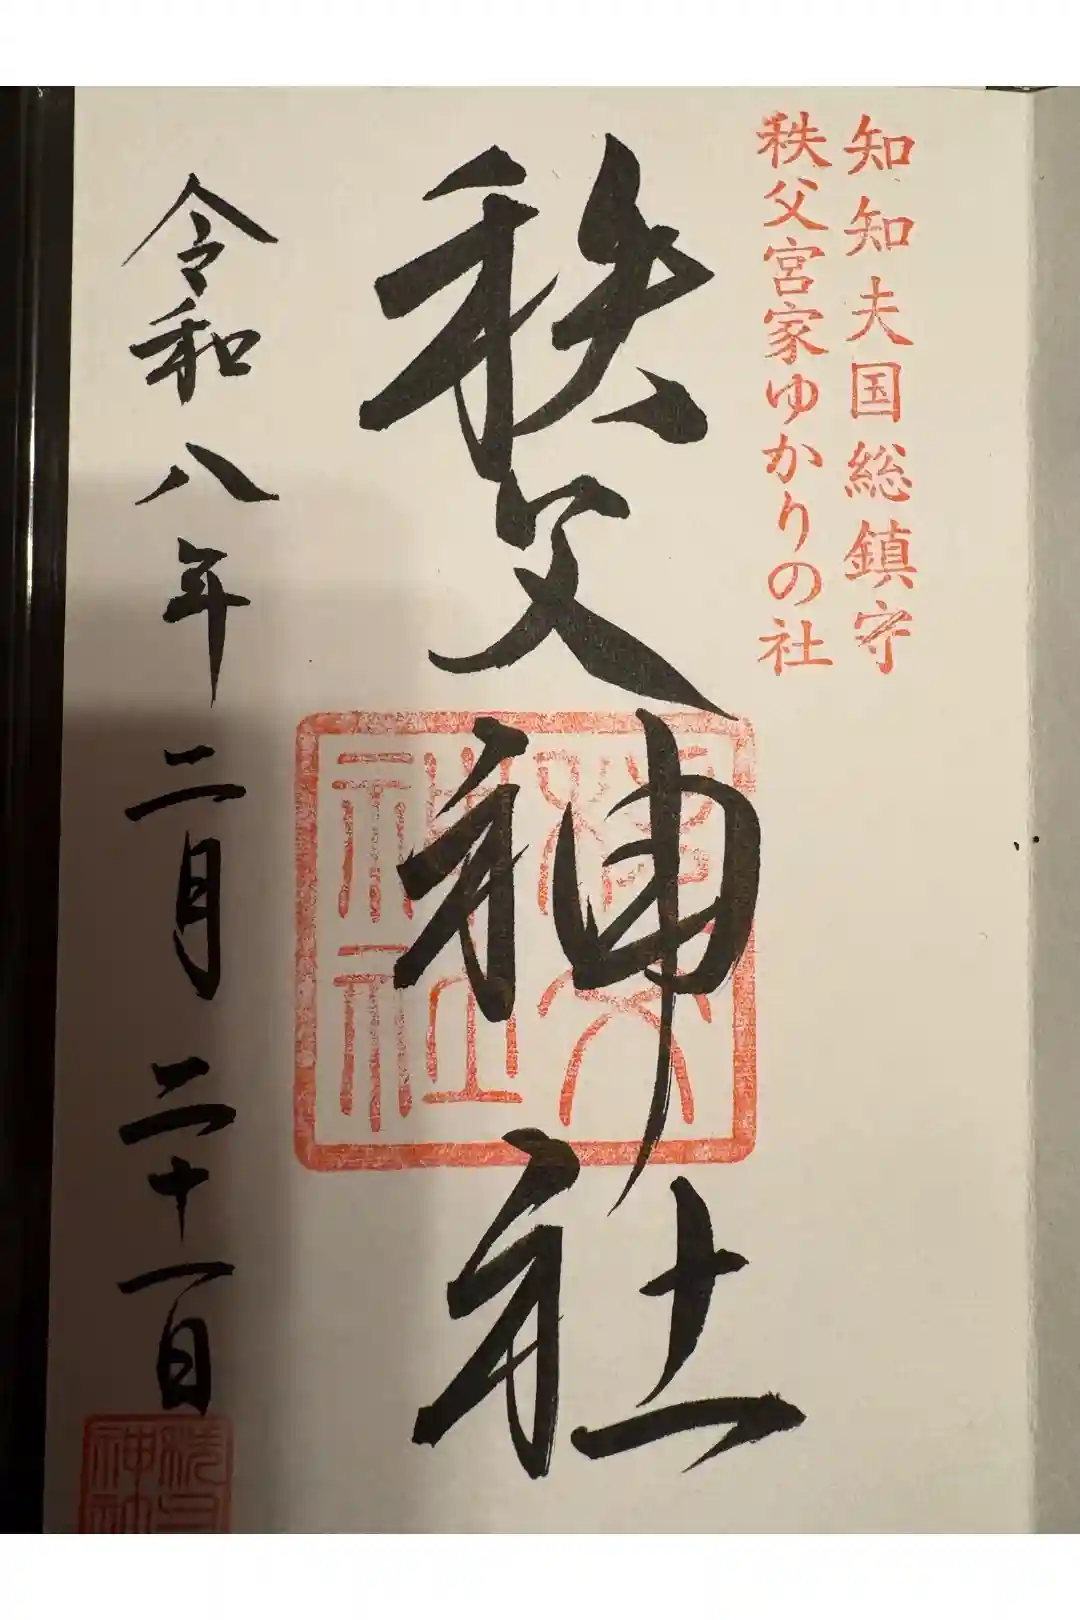 知知夫国総鎮守
秩父宮家ゆかりの社
秩父神社
秩父神社
令和八年二月二十一日